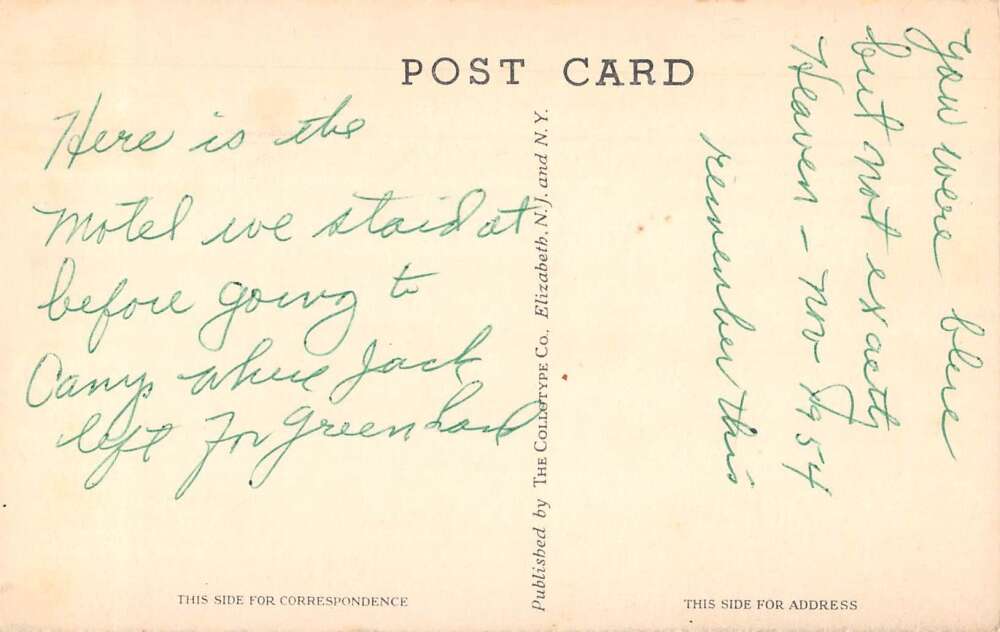 POST CARD
Here is the
Motel we staid at
before going to
Camp where Jack
left for Greenland
Published by THE COLLOTYPE Co., Elizabeth, N. J. and N. Y.
you were blue
but not exactly
Heaven - Nov 1954
remember this
THIS SIDE FOR CORRESPONDENCE
THIS SIDE FOR ADDRESS